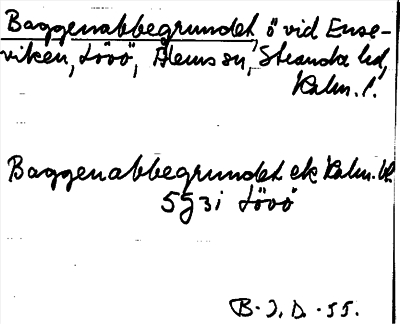 Baggenabbegrundet, ö vid Ense-
viken, Lövö, Stranda hd,
Kalm. l.
Baggenabbegrundet ek Kalm. bl.
5g3i Lövö
B. J. D. -55.